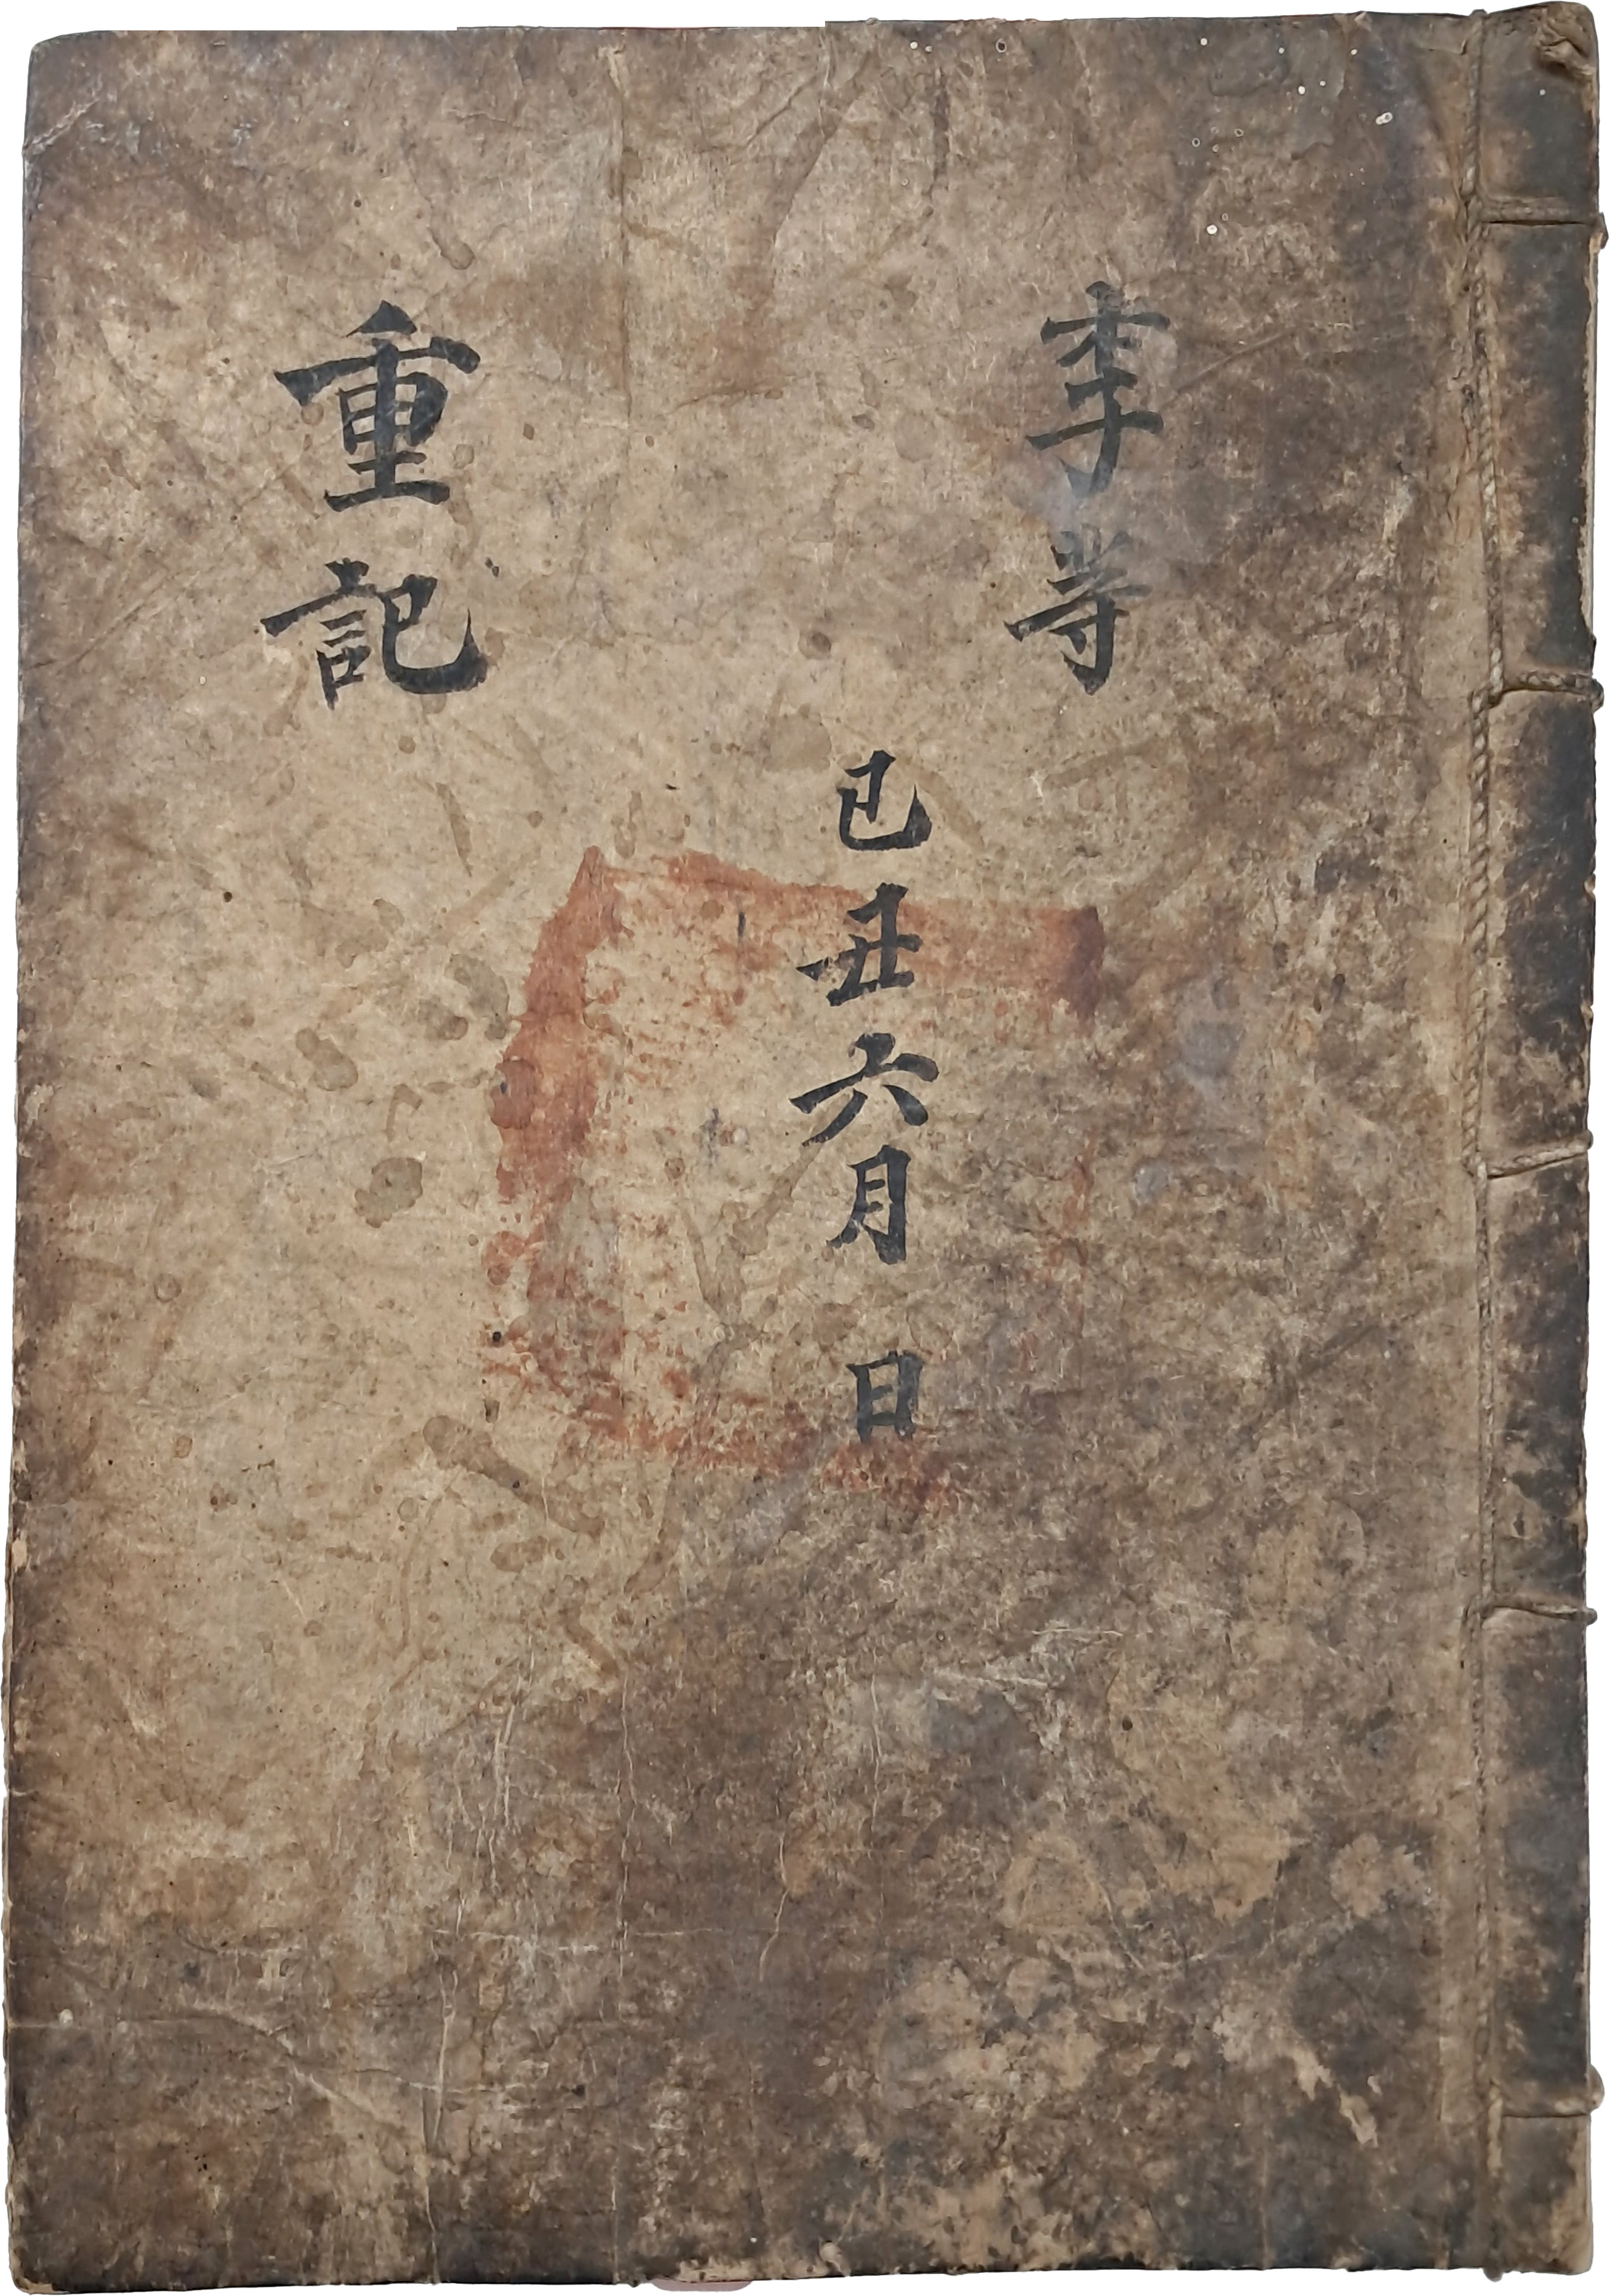 李等
己丑六月 日
重記